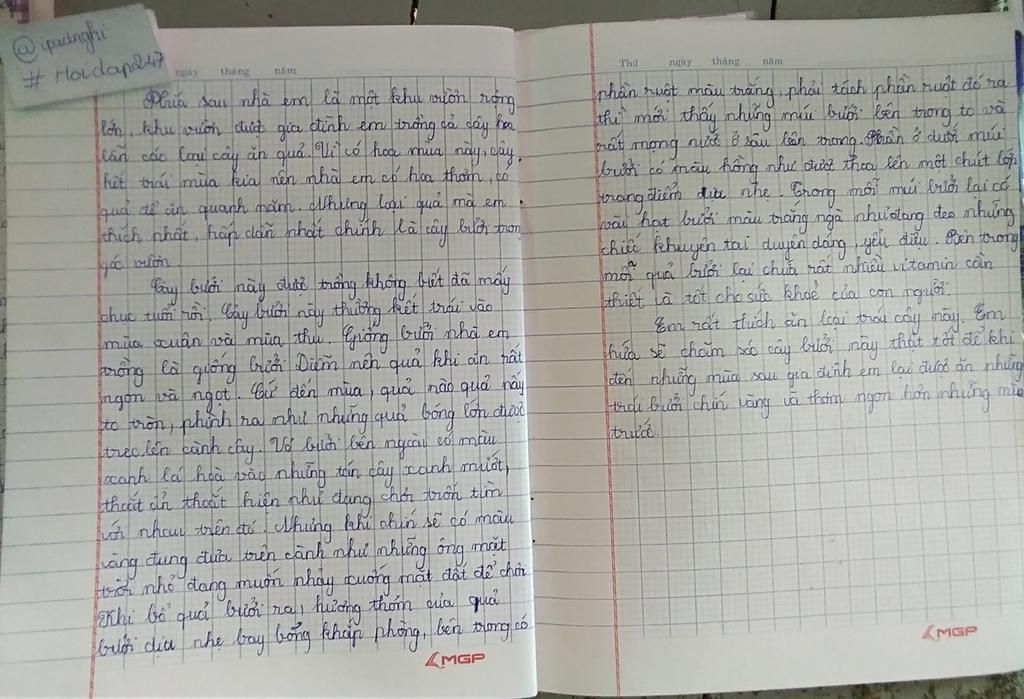 @ipuanghi
# Hoidap247
ngày tháng năm
Phía sau nhà em là một khu vườn rộng
lớn, khu vườn được gia đình em trồng cả cây hoa
lẫn các loại cây ăn quả. Vì có hoa mùa này, cây
hết trái mùa kia nên nhà em có hoa thơm, có
quả để ăn quanh năm. Nhưng loại quả mà em
thích nhất, hấp dẫn nhất chính là cây bưởi trong
góc vườn.
Cây bưởi này được trồng không biết đã mấy
chục tuổi rồi. Cây bưởi này thường kết trái vào
mùa xuân và mùa thu. Giống bưởi nhà em
trồng là giống bưởi Diễn nên quả khi ăn rất
ngon và ngọt. Cứ đến mùa, quả nào quả nấy
to tròn, phình ra như những quả bóng lớn được
treo lên cành cây. Vỏ bưởi bên ngoài có màu
xanh lá hoà vào những tán cây xanh mướt,
thoắt ẩn thoắt hiện như đang chơi trốn tìm
với nhau trên đó. Nhưng khi chín sẽ có màu
vàng đung đưa trên cành như những ông mặt
trời nhỏ đang muốn nhảy xuống mặt đất để chơi
Khi bổ quả bưởi ra, hương thơm của quả
bưởi dịu nhẹ bay bổng khắp phòng, bên trong có
MGP
Thứ ngày tháng năm
phần ruột màu trắng, phải tách phần ruột đó ra
thì mới thấy những múi bưởi bên trong to và
rất mọng nước ở sâu bên trong. Phần ở dưới múi
bưởi có màu hồng như được thoa lên một chút lớp
trang điểm dịu nhẹ. Trong mỗi múi bưởi lại có
vài hạt bưởi màu trắng ngà như đang đeo những
chiếc khuyên tai duyên dáng, yểu điệu. Bên trong
mỗi quả bưởi lại chứa rất nhiều vitamin cần
thiết là tốt cho sức khoẻ của con người.
Em rất thích ăn loại trái cây này. Em
hứa sẽ chăm sóc cây bưởi này thật tốt để khi
đến những mùa sau gia đình em lại được ăn những
trái bưởi chín vàng và thơm ngon hơn những mùa
trước.
MGP